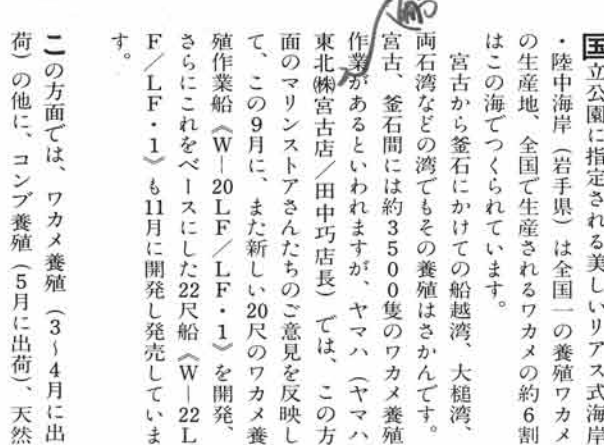 国立公園に指定される美しいリアス式海岸
・陸中海岸（岩手県）は全国一の養殖ワカメ
の生産地、全国で生産されるワカメの約6割
はこの海でつくられています。
宮古から釜石にかけての船越湾、大槌湾、
両石湾などの湾でもその養殖はさかんです。
宮古、釜石間には約3500隻のワカメ養殖
作業があるといわれますが、ヤマハ（ヤマハ
東北㈱宮古店／田中巧店長）では、この方
面のマリンストアさんたちのご意見を反映し
て、この9月に、また新しい20尺のワカメ養
殖作業船《W―20LF／LF・1》を開発、
さらにこれをベースにした22尺船《W―22L
F／LF・1》も11月に開発し発売していま
す。
この方面では、ワカメ養殖（3〜4月に出
荷）の他に、コンブ養殖（5月に出荷）、天然